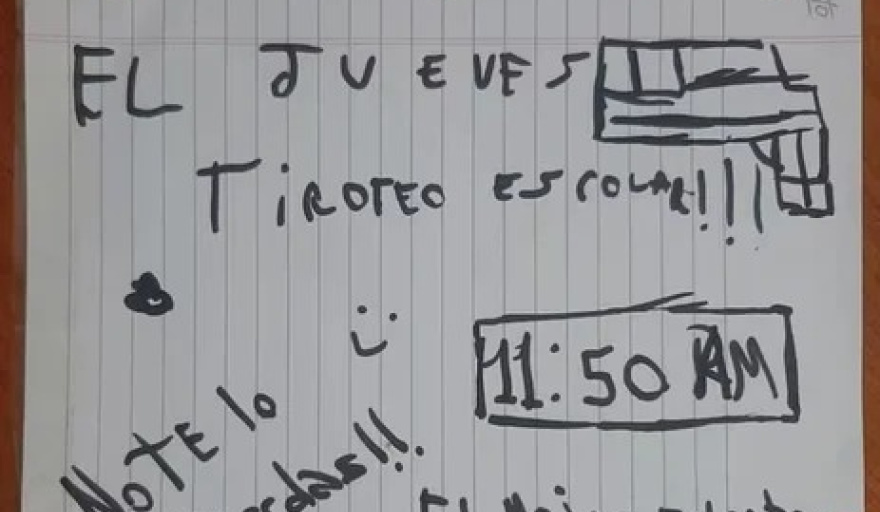 EL JUEVES
TiROTEO ESCOLAR!!!
11:50 AM
NOTE lo